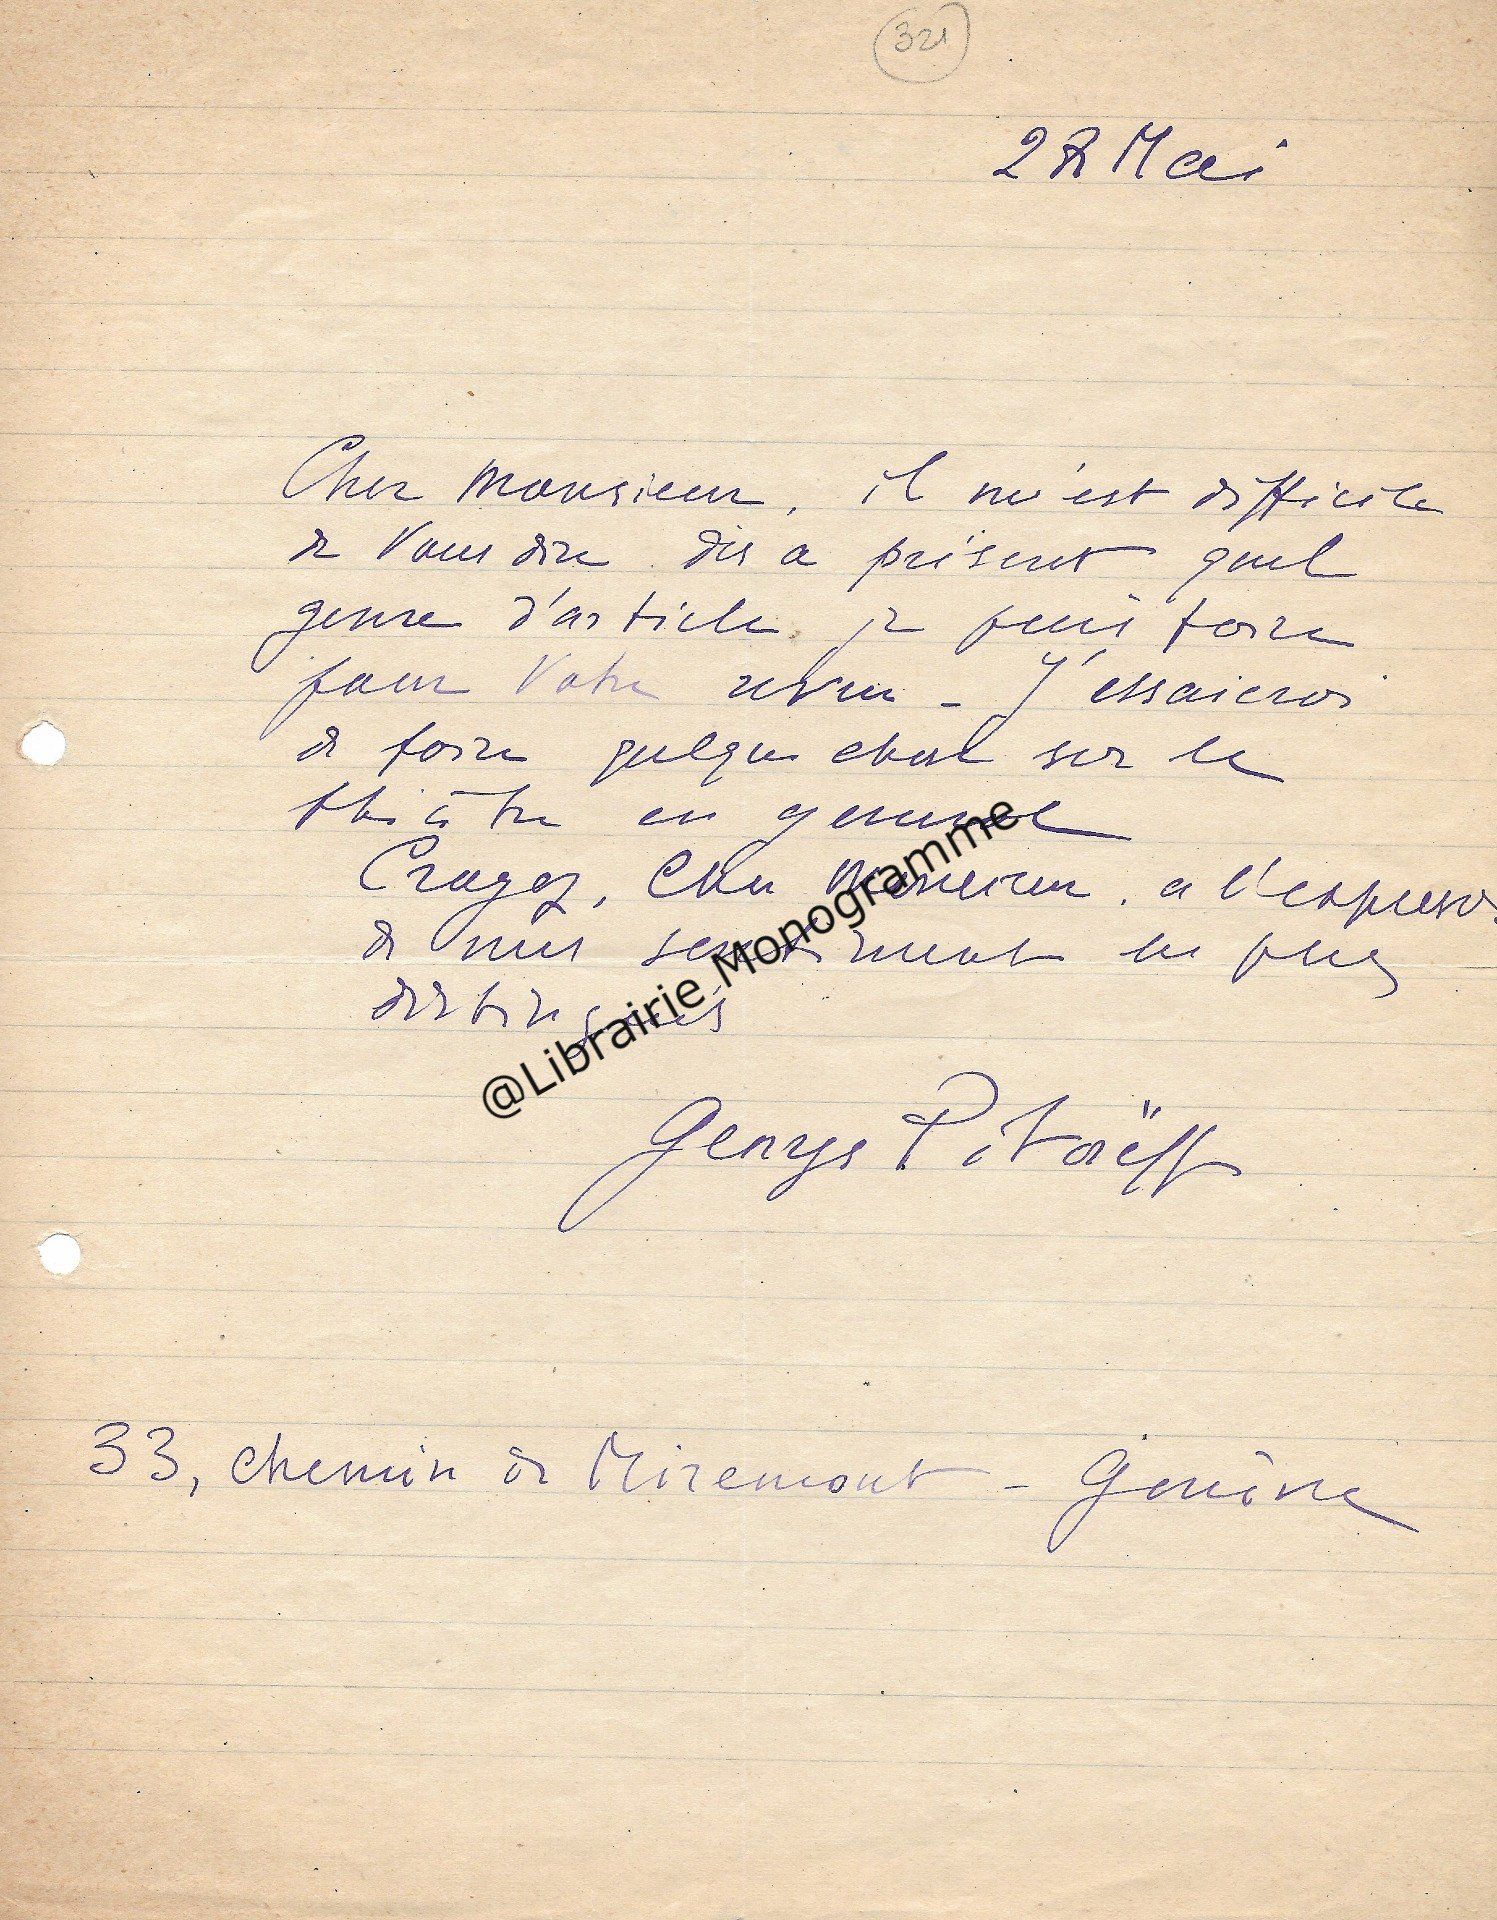 321
28 Mai
Cher Monsieur, il m'est difficile
de Vous dire dès a présent quel
genre d'article je puis faire
pour Votre revue - J'essaierai
de faire quelque chose sur le
théâtre en general
Croyez, Cher Monsieur, a l'expression
de mes sentiments les plus
distingués
@Librairie Monogramme
Georges Pitoëff
33, chemin de Miremont - Genève